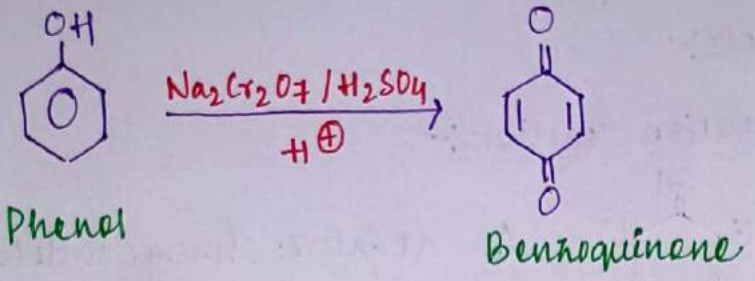 OH
Na2Cr2O7 / H2SO4
H⊕
O
O
Phenol
Benzoquinone